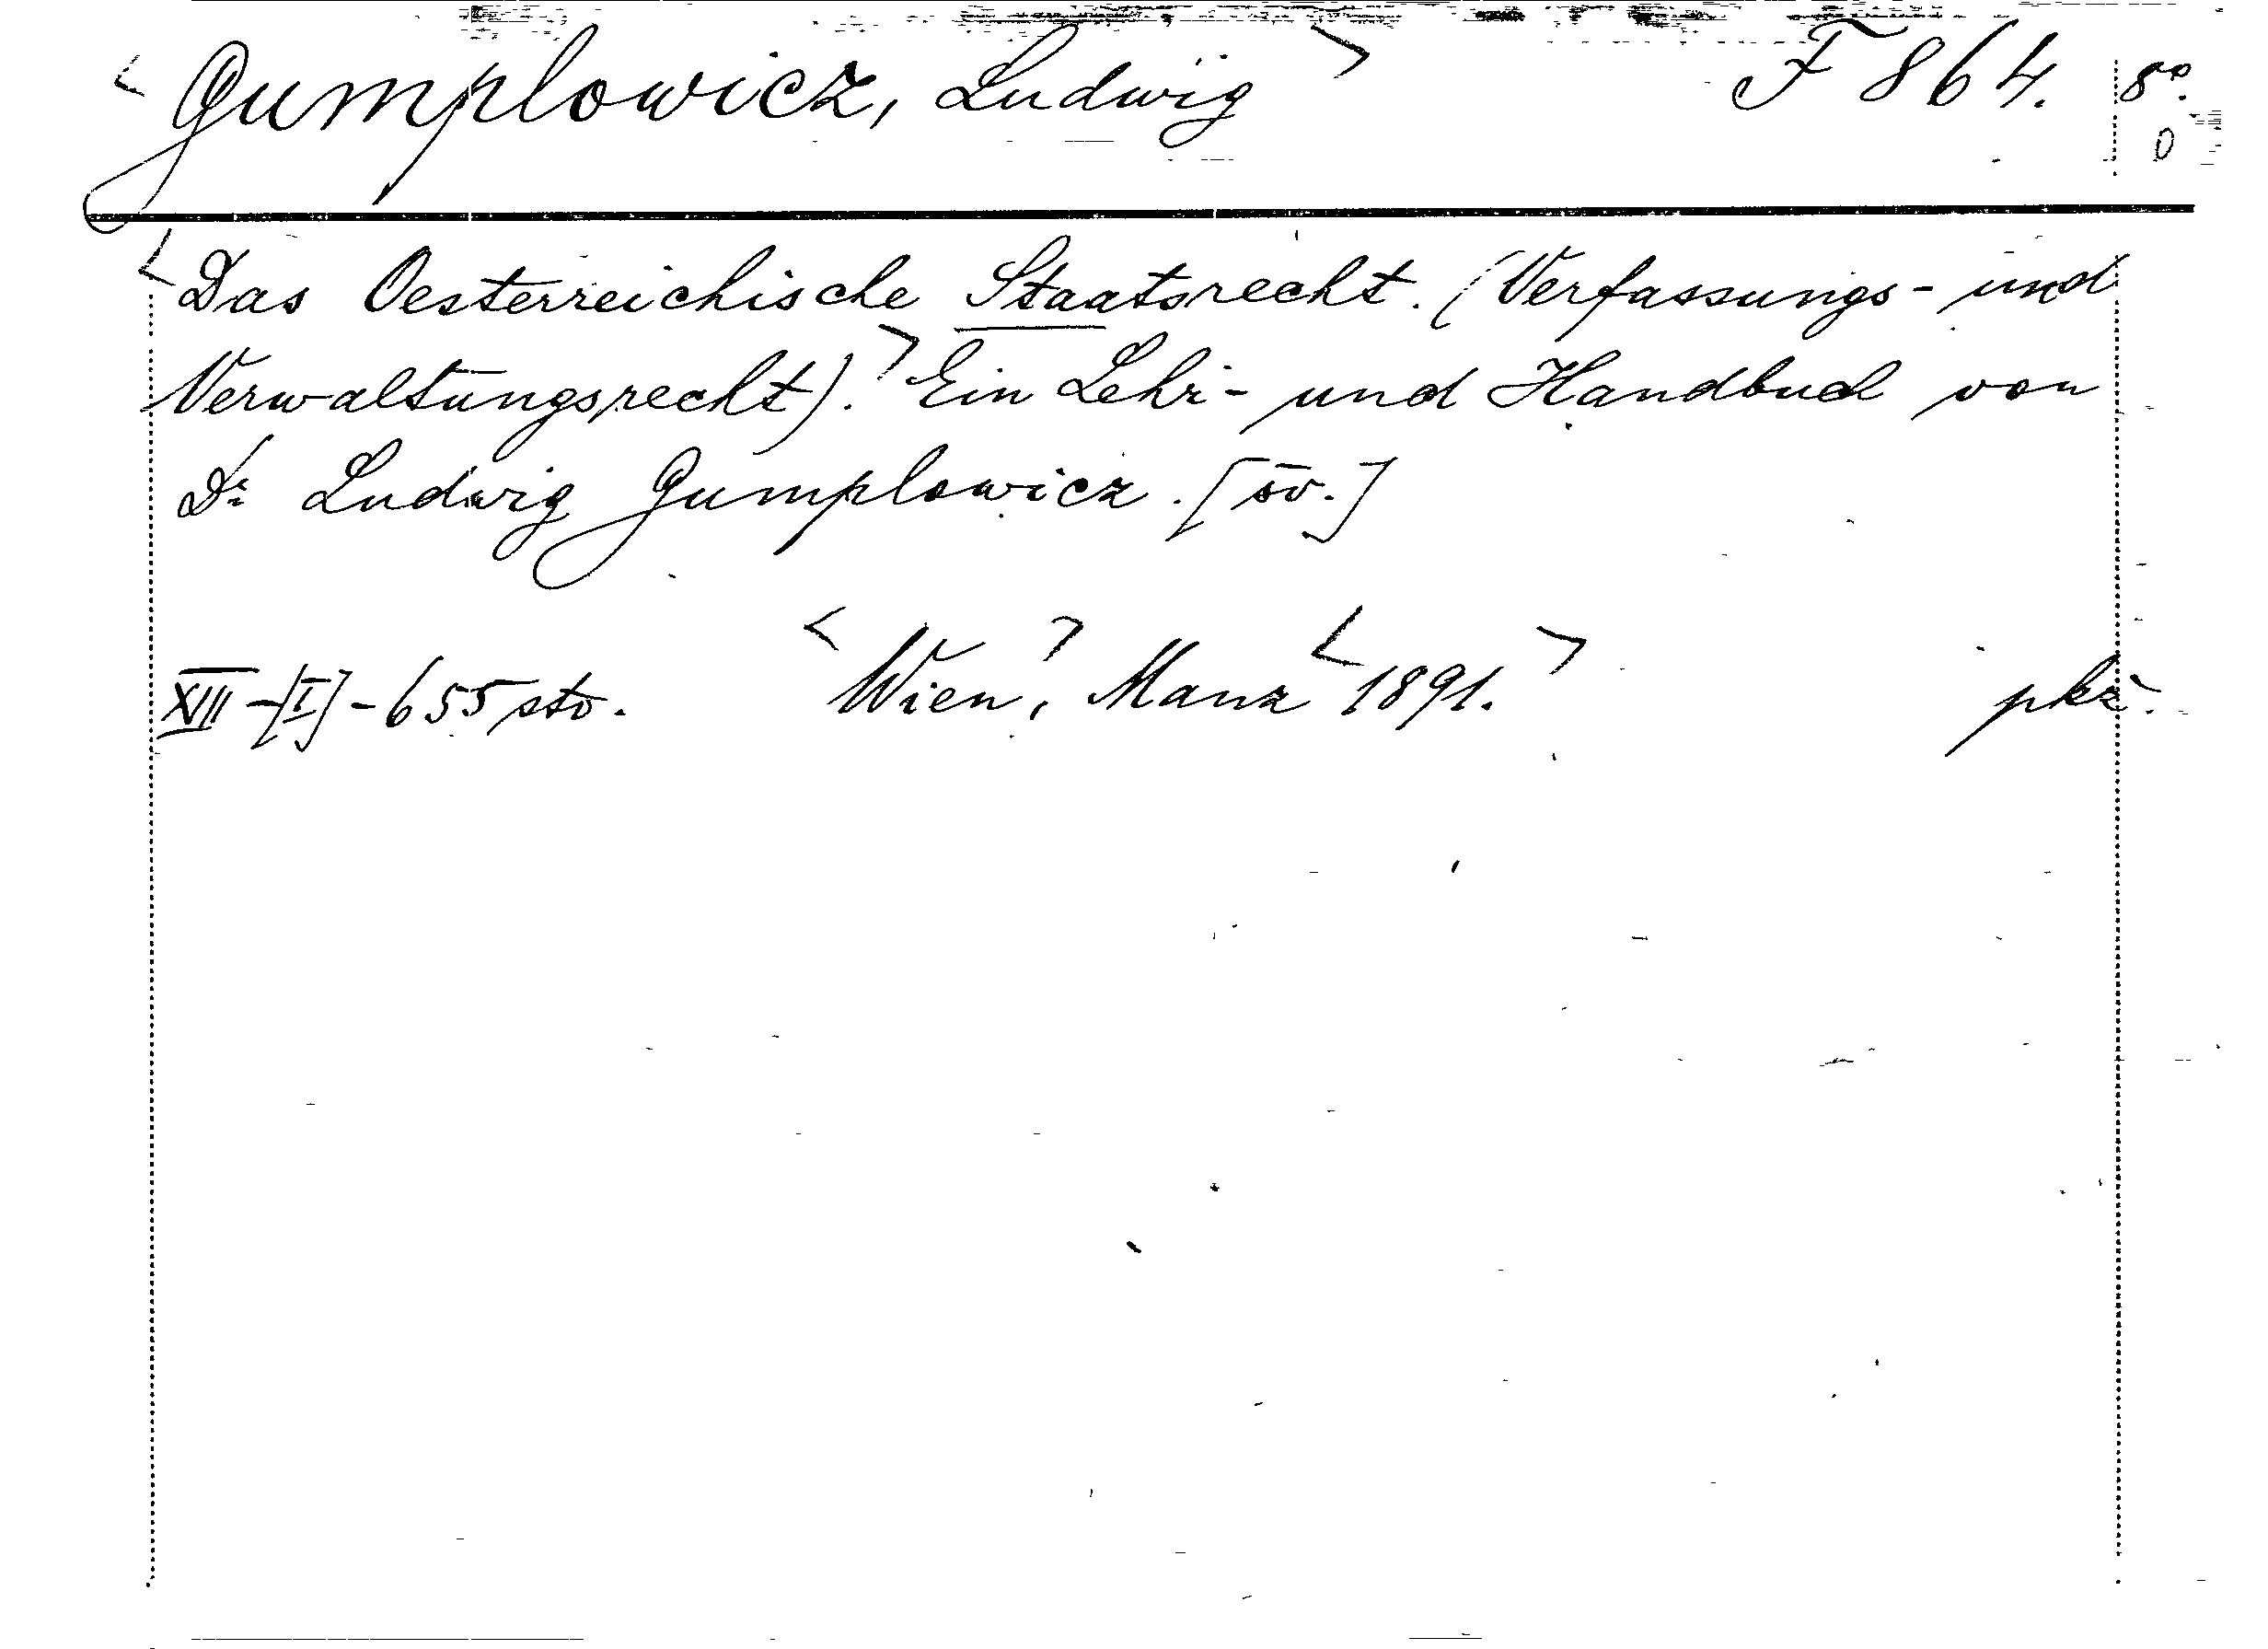 <Gumplowicz, Ludwig> F 864. 8°.
0
<Das Oesterreichische Staatsrecht. (Verfassungs- und
Verwaltungsrecht).> Ein Lehr- und Handbuch von
Dr. Ludwig Gumplowicz. [sv.]
XIII-[I]-655 str. <Wien,> Manz <1891.> pkž.